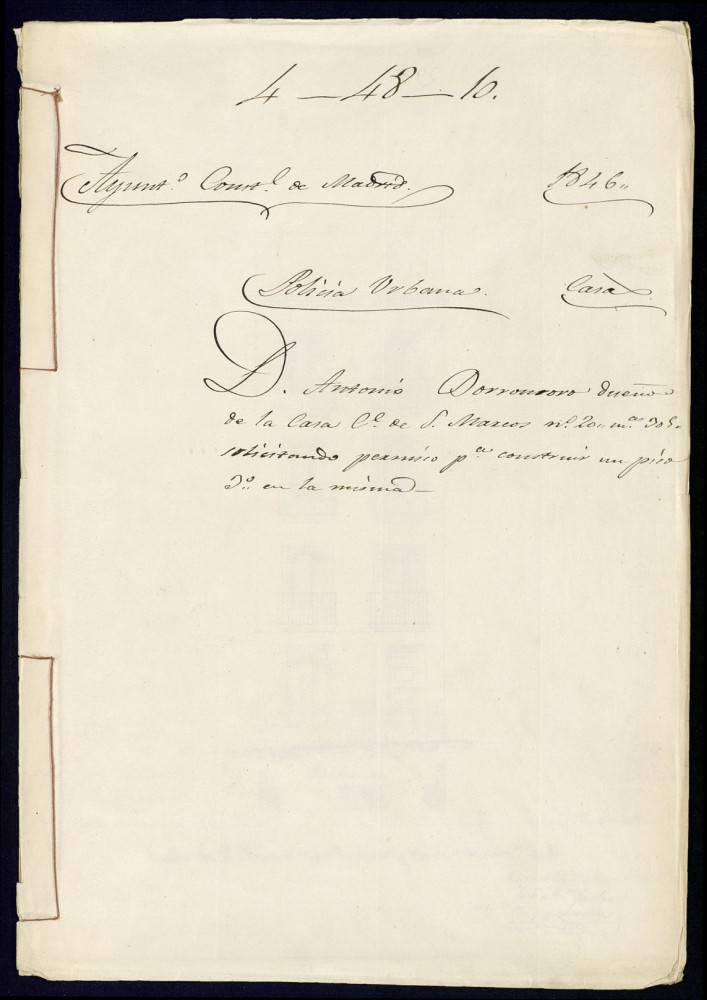 4 — 48 — 10.
Ayunt.º Const.l de Madrid. 1846"
Policia Urbana. Casa
D. Antonio Dorronsoro dueño
de la Casa C.e de S. Marcos n.º 20" m.ª 305"
solicitando permiso p.ª construir un piso
3.º en la misma—